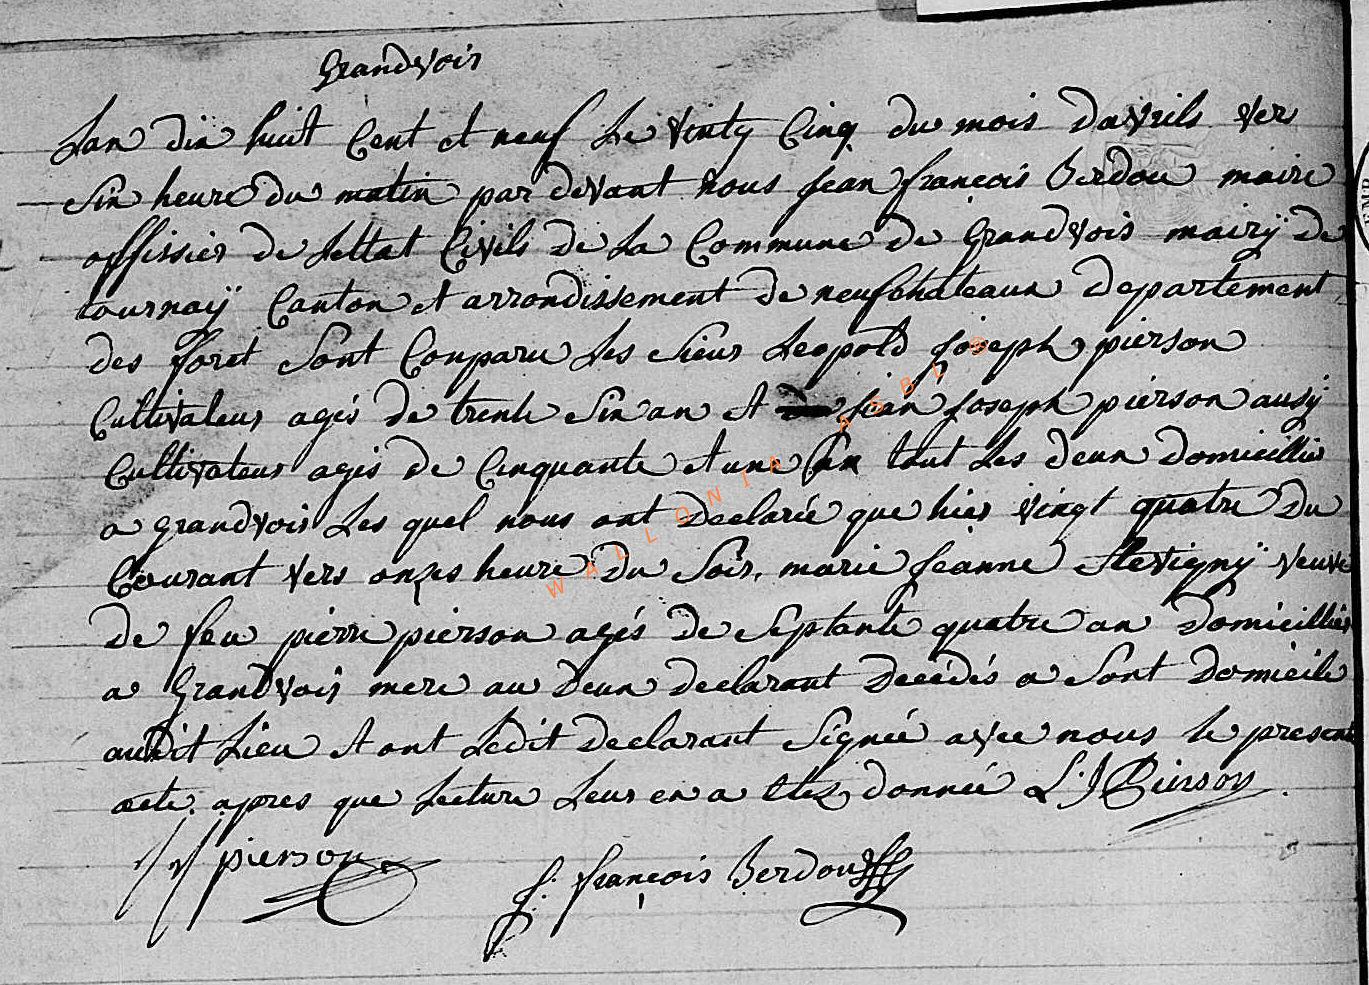 Grandvoir
Lan dix huit Cent et neuf Le vinty Cinq du mois Davrils ver
Six heure du matin par devant nous jean françois Berdou maire
offissier de Lettat Civils de La Commune de Grandvois mairÿ de
tournaÿ Canton et arrondissement de neufchateaux departement
des foret Sont Conparu Les Sieur Leopold joseph pierson
Cultivateur agés de trente Six an et jean joseph pierson ausÿ
Cultivateur agis de Cinquante et une an tout Les deux domicillie
a grandvois Les quel nous ont declarée que hier vingt quatre du
Courant vers onzes heure du Soir, marie jeanne Stevignÿ veuve
de feu pierre pierson agés de Septante quatre an domicilliés
a Grandvois mere au deux declarant decedés a Sont domicile
audit Lieu et ont Ledit declarant Signée avec nous le present
acte apres que Lecture Leur en a etez donnée L. J Pierson
J J pierson
J. françois Berdou
WALLONIA ASBL ©